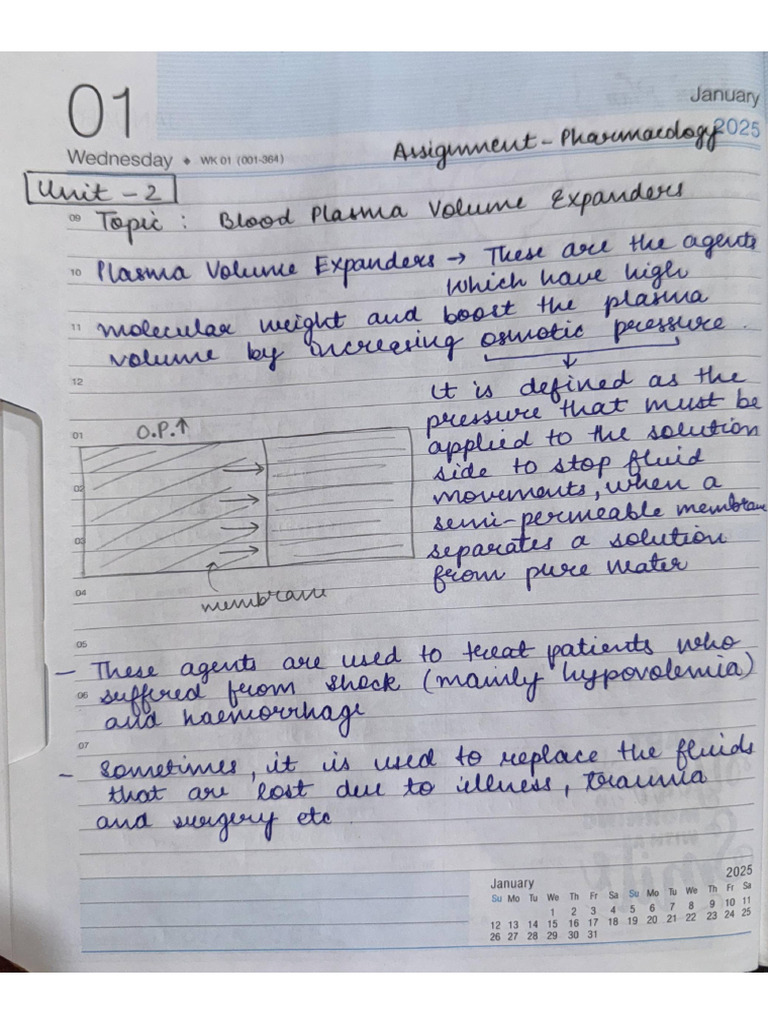 01
January
2025
Wednesday • WK 01 (001-364)
Assignment - Pharmacology
Unit - 2
09 Topic : Blood Plasma Volume Expanders
10 Plasma Volume Expanders → These are the agents
which have high
11 molecular weight and boost the plasma
volume by increasing osmotic pressure.
12
It is defined as the
pressure that must be
applied to the solution
side to stop fluid
movements, when a
semi-permeable membrane
separates a solution
from pure water
01 O.P.↑
02
03
04
membrane
05
- These agents are used to treat patients who
06 suffered from shock (mainly hypovolemia)
and haemorrhage
07
- Sometimes, it is used to replace the fluids
that are lost due to illness, trauma
and surgery etc.
January 2025
Su Mo Tu We Th Fr Sa Su Mo Tu We Th Fr Sa
1 2 3 4 5 6 7 8 9 10 11
12 13 14 15 16 17 18 19 20 21 22 23 24 25
26 27 28 29 30 31